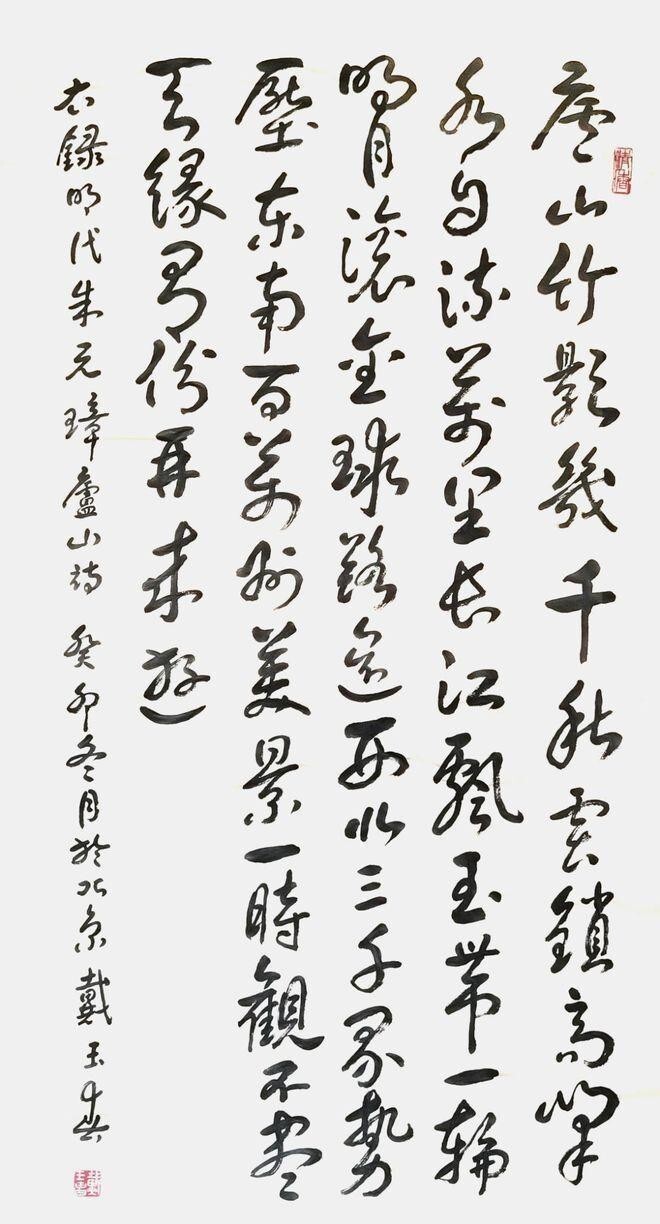 廬山竹影幾千秋雲鎖高峯
水自流萬里長江飄玉帶一輪
明月滚金球路遥西北三千界勢
壓東南百萬州美景一時觀不盡
天緣有份再來遊
右録明代朱元璋廬山詩 癸卯冬月於北京戴玉